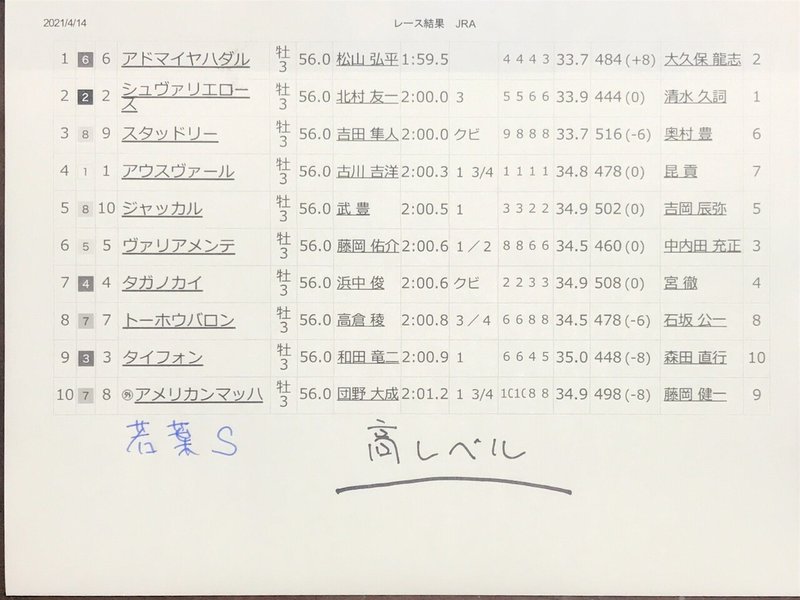 2021/4/14 レース結果 JRA
1 6 6 アドマイヤハダル 牡3 56.0 松山 弘平 1:59.5 4 4 4 3 33.7 484 (+8) 大久保 龍志 2
2 2 2 シュヴァリエローズ 牡3 56.0 北村 友一 2:00.0 3 5 5 6 6 33.9 444 (0) 清水 久詞 1
3 8 9 スタッドリー 牡3 56.0 吉田 隼人 2:00.0 クビ 9 8 8 8 33.7 516 (-6) 奥村 豊 6
4 1 1 アウスヴァール 牡3 56.0 古川 吉洋 2:00.3 1 3/4 1 1 1 1 34.8 478 (0) 昆 貢 7
5 8 10 ジャッカル 牡3 56.0 武 豊 2:00.5 1 3 3 2 2 34.9 502 (0) 吉岡 辰弥 5
6 5 5 ヴァリアメンテ 牡3 56.0 藤岡 佑介 2:00.6 1/2 8 8 6 6 34.5 460 (0) 中内田 充正 3
7 4 4 タガノカイ 牡3 56.0 浜中 俊 2:00.6 クビ 2 2 3 3 34.9 508 (0) 宮 徹 4
8 7 7 トーホウバロン 牡3 56.0 高倉 稜 2:00.8 3/4 6 6 8 8 34.5 478 (-6) 石坂 公一 8
9 3 3 タイフォン 牡3 56.0 和田 竜二 2:00.9 1 6 6 4 5 35.0 448 (-8) 森田 直行 10
10 7 8 ㊕アメリカンマッハ 牡3 56.0 団野 大成 2:01.2 1 3/4 10 10 8 8 34.9 498 (-8) 藤岡 健一 9
若葉S 高レベル